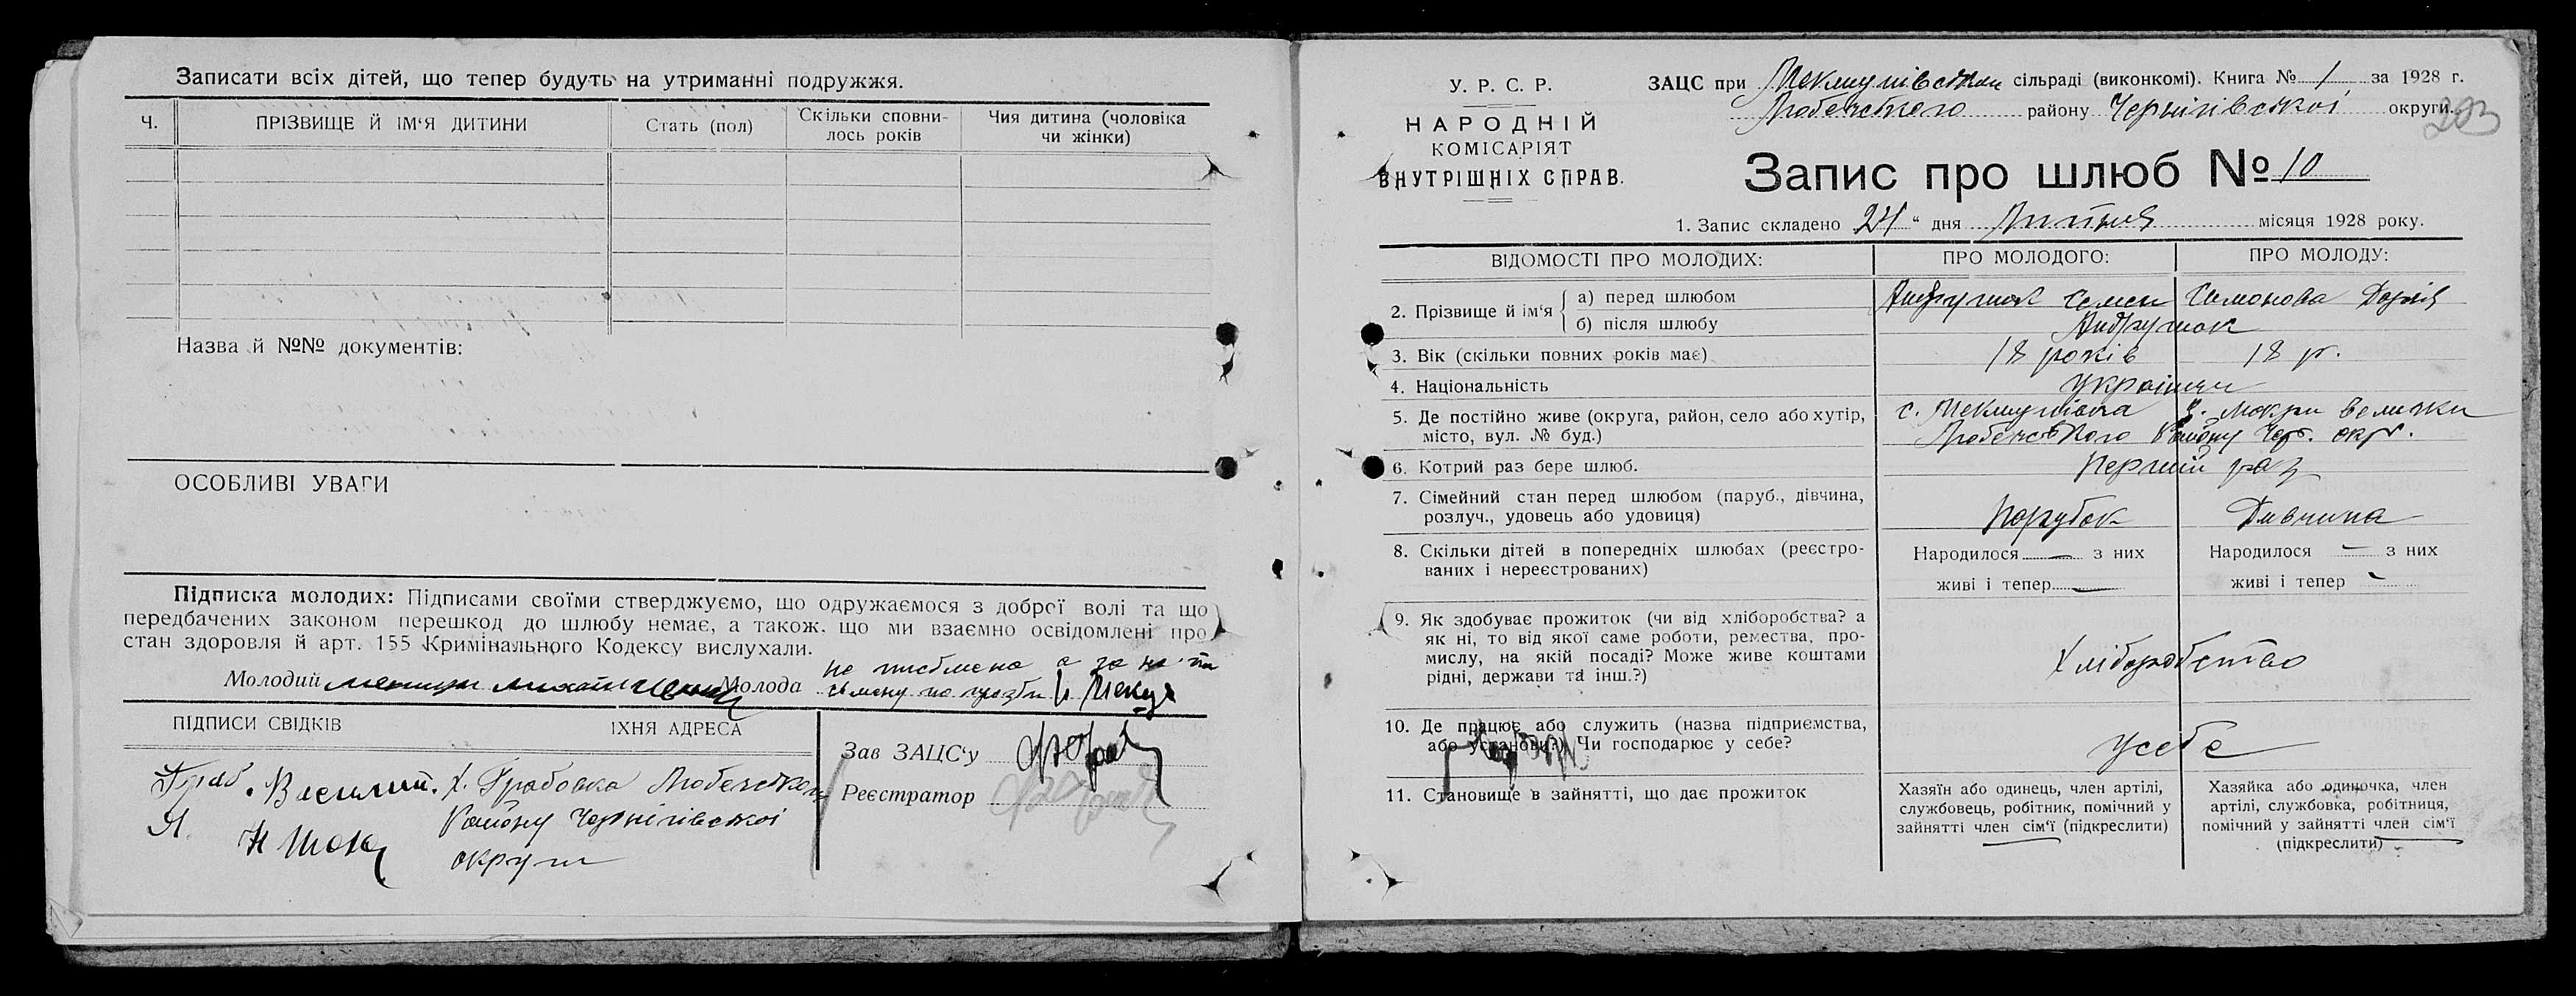 Записати всіх дітей, що тепер будуть на утриманні подружжя.
Ч.
ПРІЗВИЩЕ Й ІМ'Я ДИТИНИ
Стать (пол)
Скільки сповни-
лось років
Чия дитина (чоловіка
чи жінки)
Назва й №№ документів:
ОСОБЛИВІ УВАГИ
Підписка молодих: Підписами своїми стверджуємо, що одружаємося з доброї волі та що
передбачених законом перешкод до шлюбу немає, а також. що ми взаємно освідомлені про
стан здоровля й арт. 155 Кримінального Кодексу вислухали.
Молодий
Молода
ПІДПИСИ СВІДКІВ
ЇХНЯ АДРЕСА
Василий. х. Грабовка Любенського
Району Чернігівської
округи
Зав ЗАЦС'у
Реєстратор
У. Р. С. Р.
НАРОДНІЙ
КОМІСАРІЯТ
ВНУТРІШНІХ СПРАВ.
ЗАЦС при сільраді (виконкомі). Книга № 1 за 1928 г.
Любенського району Чернігівської округи.
203
Запис про шлюб № 10
1. Запис складено 24 " дня Липня місяця 1928 року.
ВІДОМОСТІ ПРО МОЛОДИХ:
ПРО МОЛОДОГО:
ПРО МОЛОДУ:
2. Прізвище й ім'я
а) перед шлюбом
Андрушок Семен
Симонова Дарія
б) після шлюбу
Андрушок
3. Вік (скільки повних років має)
18 років
18 р.
4. Національність
Українці
5. Де постійно живе (округа, район, село або хутір,
місто, вул. № буд.)
Любенського Району Чер. окр.
6. Котрий раз бере шлюб.
Перший раз
7. Сімейний стан перед шлюбом (паруб., дівчина,
розлуч., удовець або удовиця)
Парубок
Дивчина
8. Скільки дітей в попередніх шлюбах (реєстро-
ваних і нереєстрованих)
Народилося — з них
живі і тепер —
Народилося — з них
живі і тепер -
9. Як здобуває прожиток (чи від хліборобства? а
як ні, то від якої саме роботи, ремества, про-
мислу, на якій посаді? Може живе коштами
рідні, держави та інш.?)
Хліборобство
10. Де працює або служить (назва підприємства,
або установи?) Чи господарює у себе?
у себе
11. Становище в зайнятті, що дає прожиток
Хазяїн або одинець, член артілі,
службовець, робітник, помічний у
зайнятті член сім'ї (підкреслити)
Хазяйка або одиночка, член
артілі, службовка, робітниця,
помічний у зайнятті член сім'ї
(підкреслити)